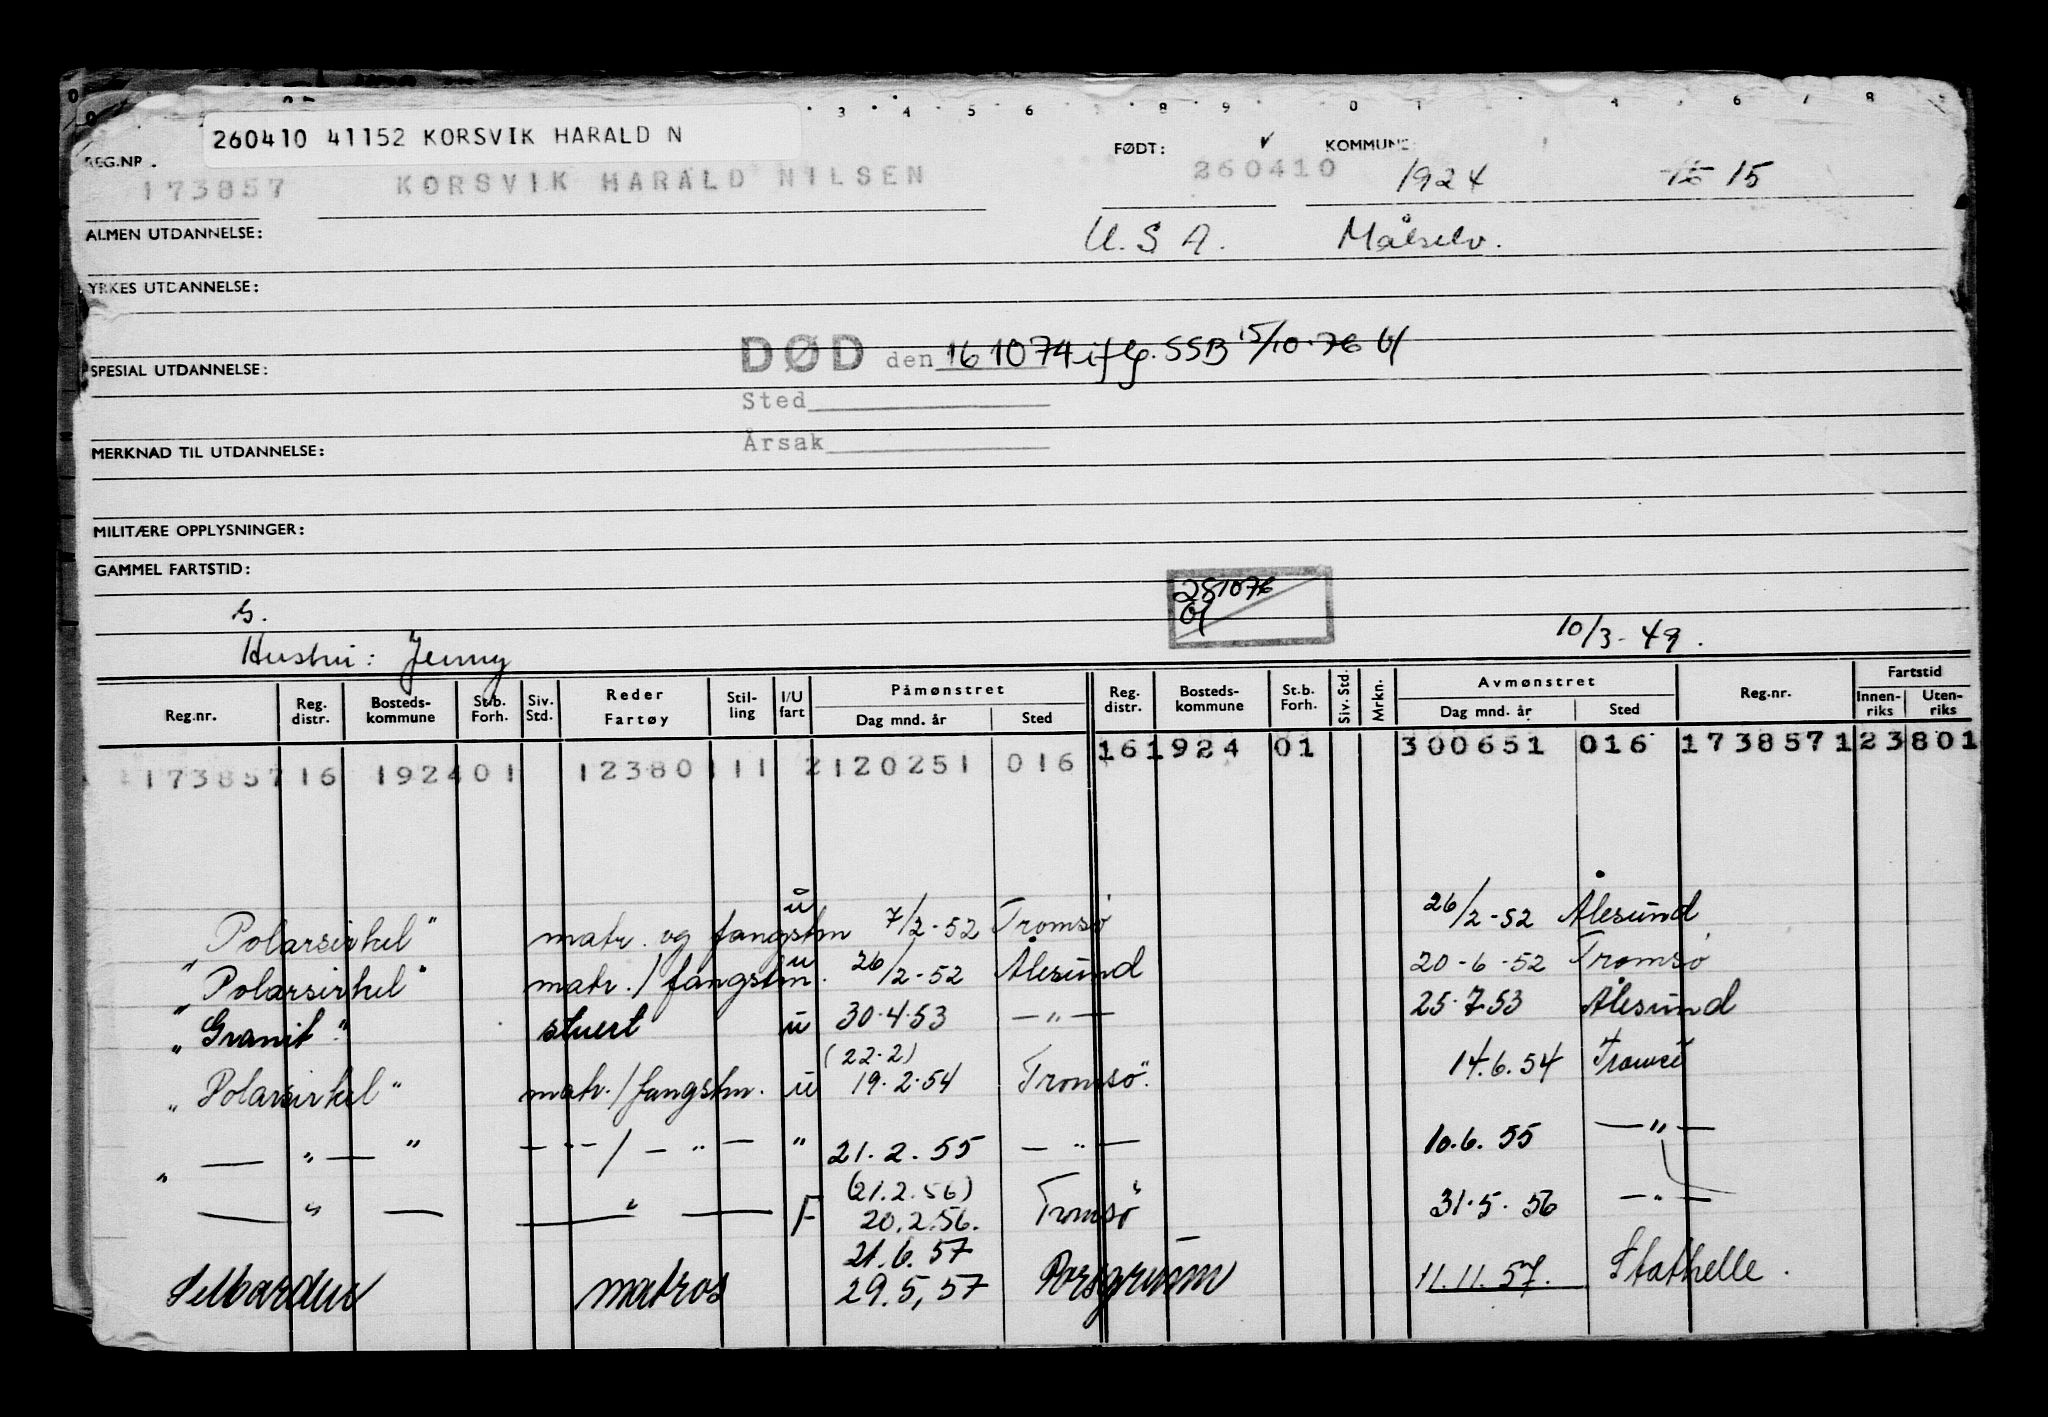 260410 41152 KORSVIK HARALD N
REG.NR. FØDT: KOMMUNE:
173857 KORSVIK HARALD NILSEN 260410 1924 15
ALMEN UTDANNELSE: U.S.A. Målselv.
YRKES UTDANNELSE:
DØD den 161074 iflg. SSB 15/10-76
SPESIAL UTDANNELSE:
Sted
Årsak
MERKNAD TIL UTDANNELSE:
MILITÆRE OPPLYSNINGER:
GAMMEL FARTSTID:
281076
G. 10/3-49.
Hustru: Jenny
Reg.nr. Reg. distr. Bosteds- kommune St.b. Forh. Siv. Std. Reder Fartøy Stil- ling I/U fart Påmønstret Dag mnd. år Sted Reg. distr. Bosteds- kommune St.b. Forh. Siv. Std. Mrkn. Avmønstret Dag mnd. år Sted Reg.nr. Fartstid Innen- riks Uten- riks
173857 16 1924 01 12380 111 2 120251 016 16 1924 01 300651 016 173857 123801
"Polarsirkel" matr. og fangstm u 7/2-52 Tromsø 26/2-52 Ålesund
"Polarsirkel" matr./fangstm. u 26/2-52 Ålesund 20-6-52 Tromsø
"Granit" stuert u 30.4.53 —"— 25.7.53 Ålesund
(22.2)
"Polarsirkel" matr./fangstm. u 19.2.54 Tromsö. 14.6.54 Tromsö
" —"— " —"—/—"— " 21.2.55 —"— 10.6.55 —"—
(21.2.56)
—"— —"— F 20.2.56. Tromsö 31.5.56 —"—
21.6.57
Selbarden matros 29.5,57 Porsgrunn 11.11.57. Stathelle.